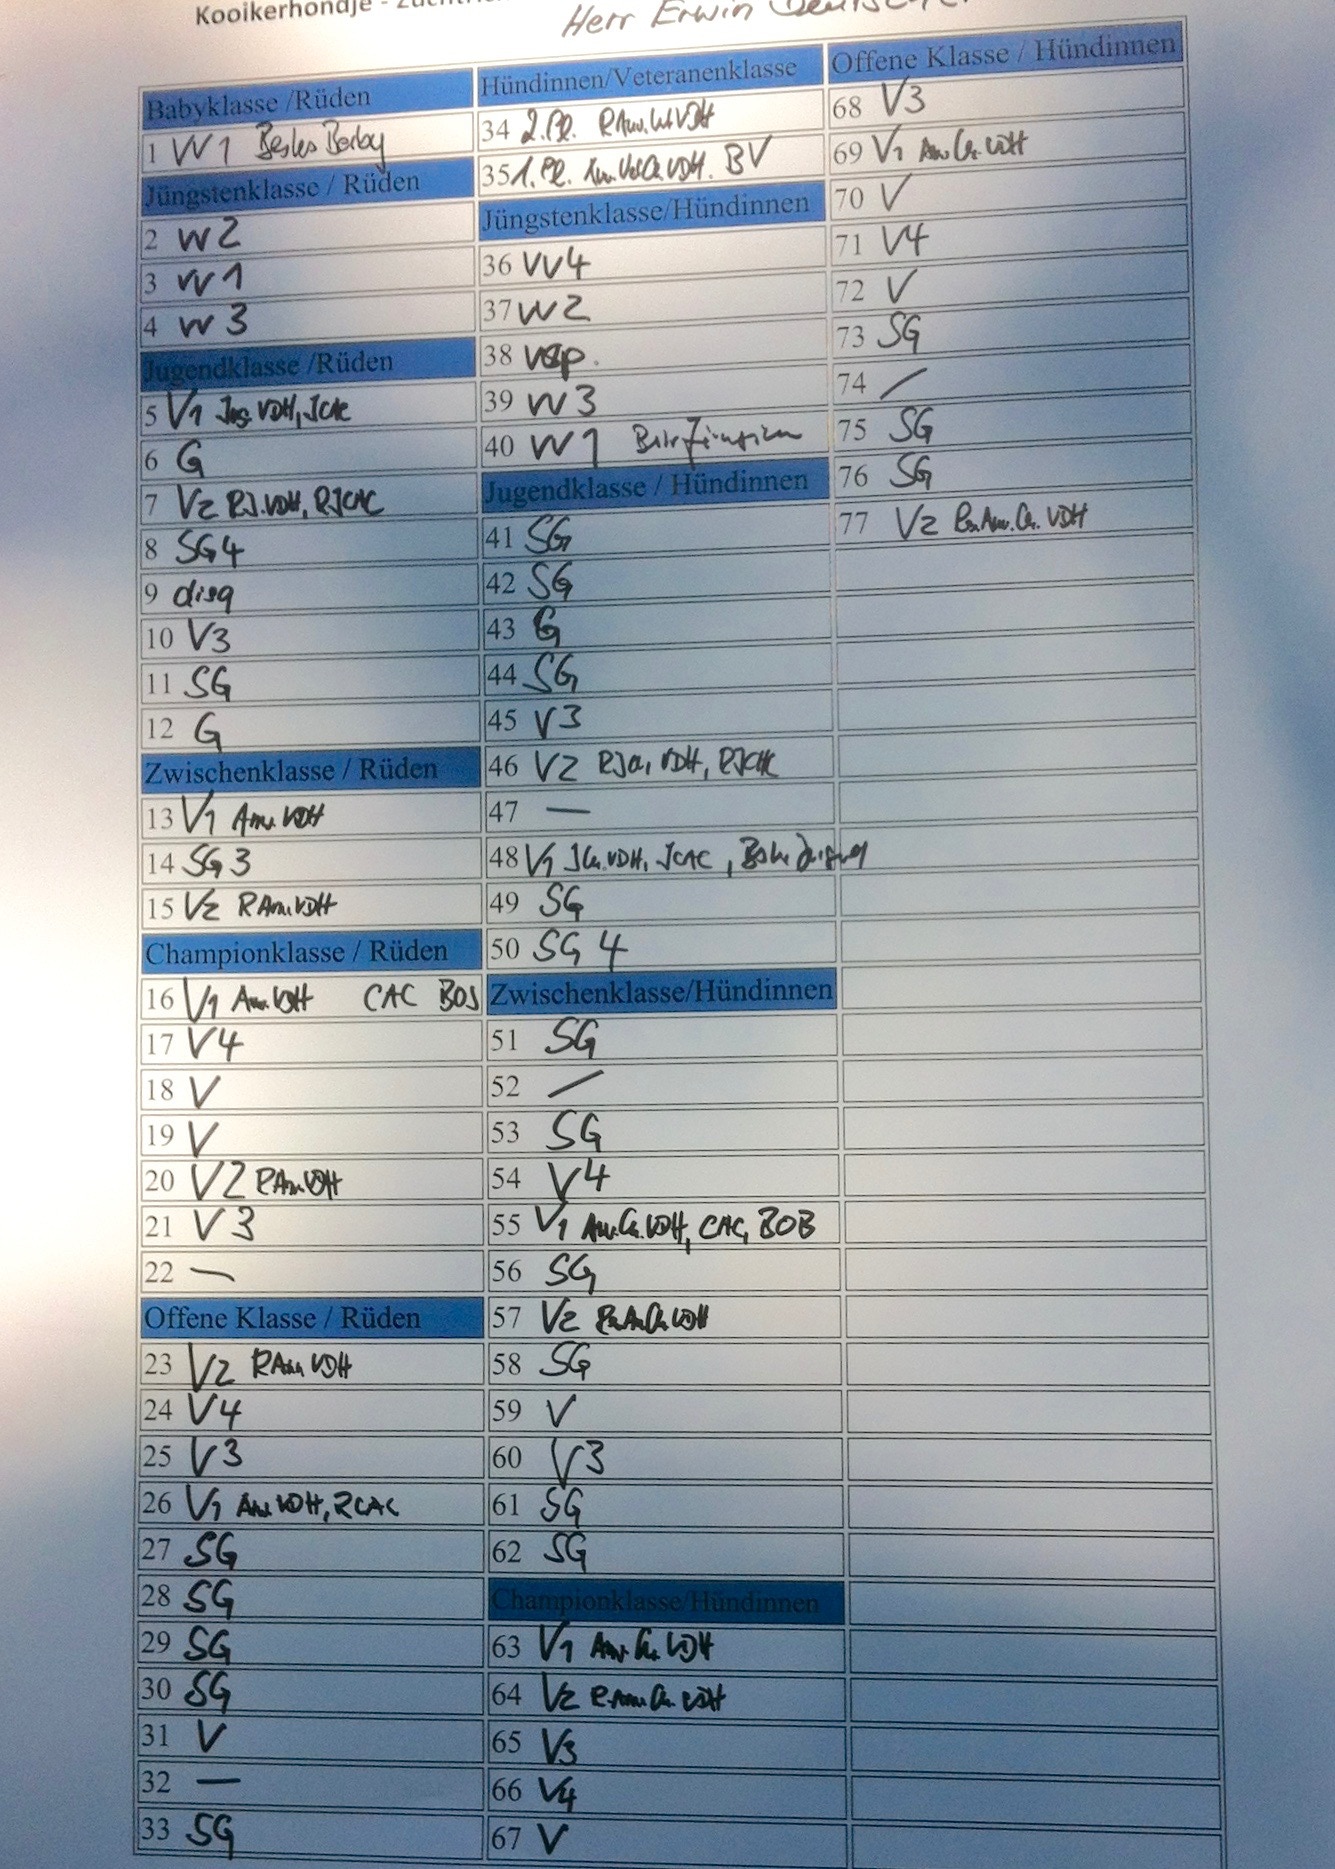 Kooikerhondje -
Herr Erwin
Babyklasse /Rüden
1 VV1 Bestes Baby
Jüngstenklasse / Rüden
2 VV2
3 VV1
4 VV3
Jugendklasse /Rüden
5 V1 Jug. VDH, JCAC
6 G
7 V2 RJ.VDH, RJCAC
8 SG4
9 disq
10 V3
11 SG
12 G
Zwischenklasse / Rüden
13 V1 Anw. VDH
14 SG 3
15 V2 R Anw. VDH
Championklasse / Rüden
16 V1 Anw. VDH CAC BOS
17 V4
18 V
19 V
20 V2 R Anw. VDH
21 V3
22 —
Offene Klasse / Rüden
23 V2 R Anw VDH
24 V4
25 V3
26 V1 Anw VDH, RCAC
27 SG
28 SG
29 SG
30 SG
31 V
32 —
33 SG
Hündinnen/Veteranenklasse
34 2. Pl. R Anw. VDH
35 1. Pl. VDH. BV
Jüngstenklasse/Hündinnen
36 VV4
37 VV2
38 vsp.
39 VV3
40 VV1
Jugendklasse / Hündinnen
41 SG
42 SG
43 G
44 SG
45 V3
46 V2 RJCh, VDH, RJCAC
47 —
48 V1 JCh. VDH, JCAC,
49 SG
50 SG 4
Zwischenklasse/Hündinnen
51 SG
52 /
53 SG
54 V4
55 V1 Anw.Ch.VDH, CAC, BOB
56 SG
57 V2 R.An.Ch.VDH
58 SG
59 V
60 V3
61 SG
62 SG
Championklasse/Hündinnen
63 V1 Anw. Ch. VDH
64 V2 R.Anw.Ch. VDH
65 V3
66 V4
67 V
Offene Klasse / Hündinnen
68 V3
69 V1 Anw Ch. VDH
70 V
71 V4
72 V
73 SG
74 /
75 SG
76 SG
77 V2 R.Anw.Ch. VDH